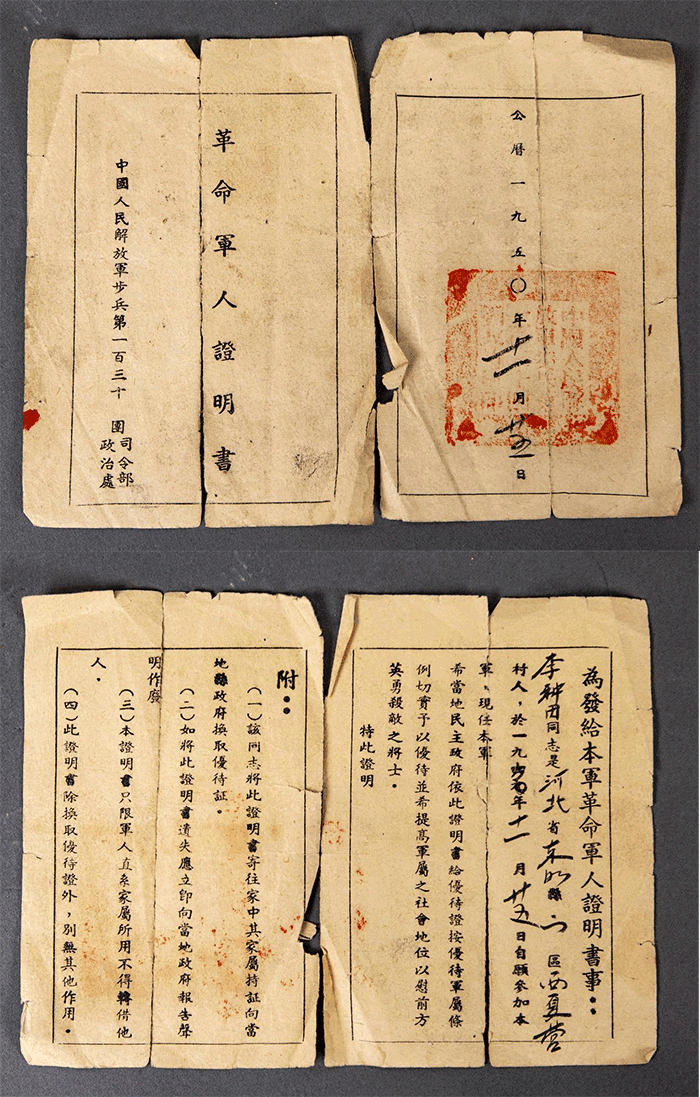 公曆一九五〇年十一月廿五日
革命軍人證明書
中國人民解放軍步兵第一百三十 團
司令部
政治處
為發給本軍革命軍人證明書事：
李 田同志是河北省東明縣 區西夏营
村人，於一九 年十一月廿五日自願參加本
軍、現任本軍
希當地民主政府依此證明書給優待證按優待軍屬條
例切實予以優待並希提高軍屬之社會地位以慰前方
英勇殺敵之將士。
特此證明
附：
（一）該同志將此證明書寄往家中其家屬持証向當
地縣政府換取優待証。
（二）如將此證明書遺失應立即向當地政府報告聲
明作廢
（三）本證明書只限軍人直系家屬所用不得轉借他
人。
（四）此證明書除換取優待證外，別無其他作用。